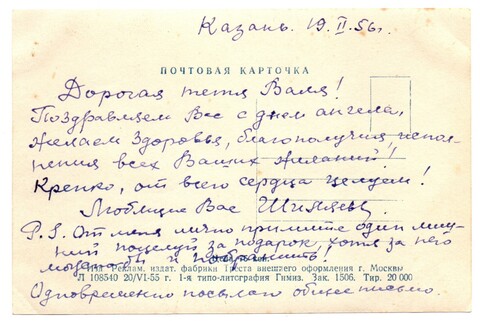 Казань. 19.II.56г.
ПОЧТОВАЯ КАРТОЧКА
Дорогая тетя Валя!
Поздравляем Вас с днем ангела,
желаем здоровья, благополучия, испол-
нения всех Ваших желаний!
Крепко, от всего сердца целуем!
Любящие Вас
P.S. От меня лично примите один лиш-
ний поцелуй за подарок, хотя за него
и
Изд. Реклам. издат. фабрики Треста внешнего оформления г. Москвы
Л 108540 20/VI-55 г. 1-я типо-литография Гимиз. Зак. 1506. Тир. 20 000
Одновременно посылаю общее письмо.